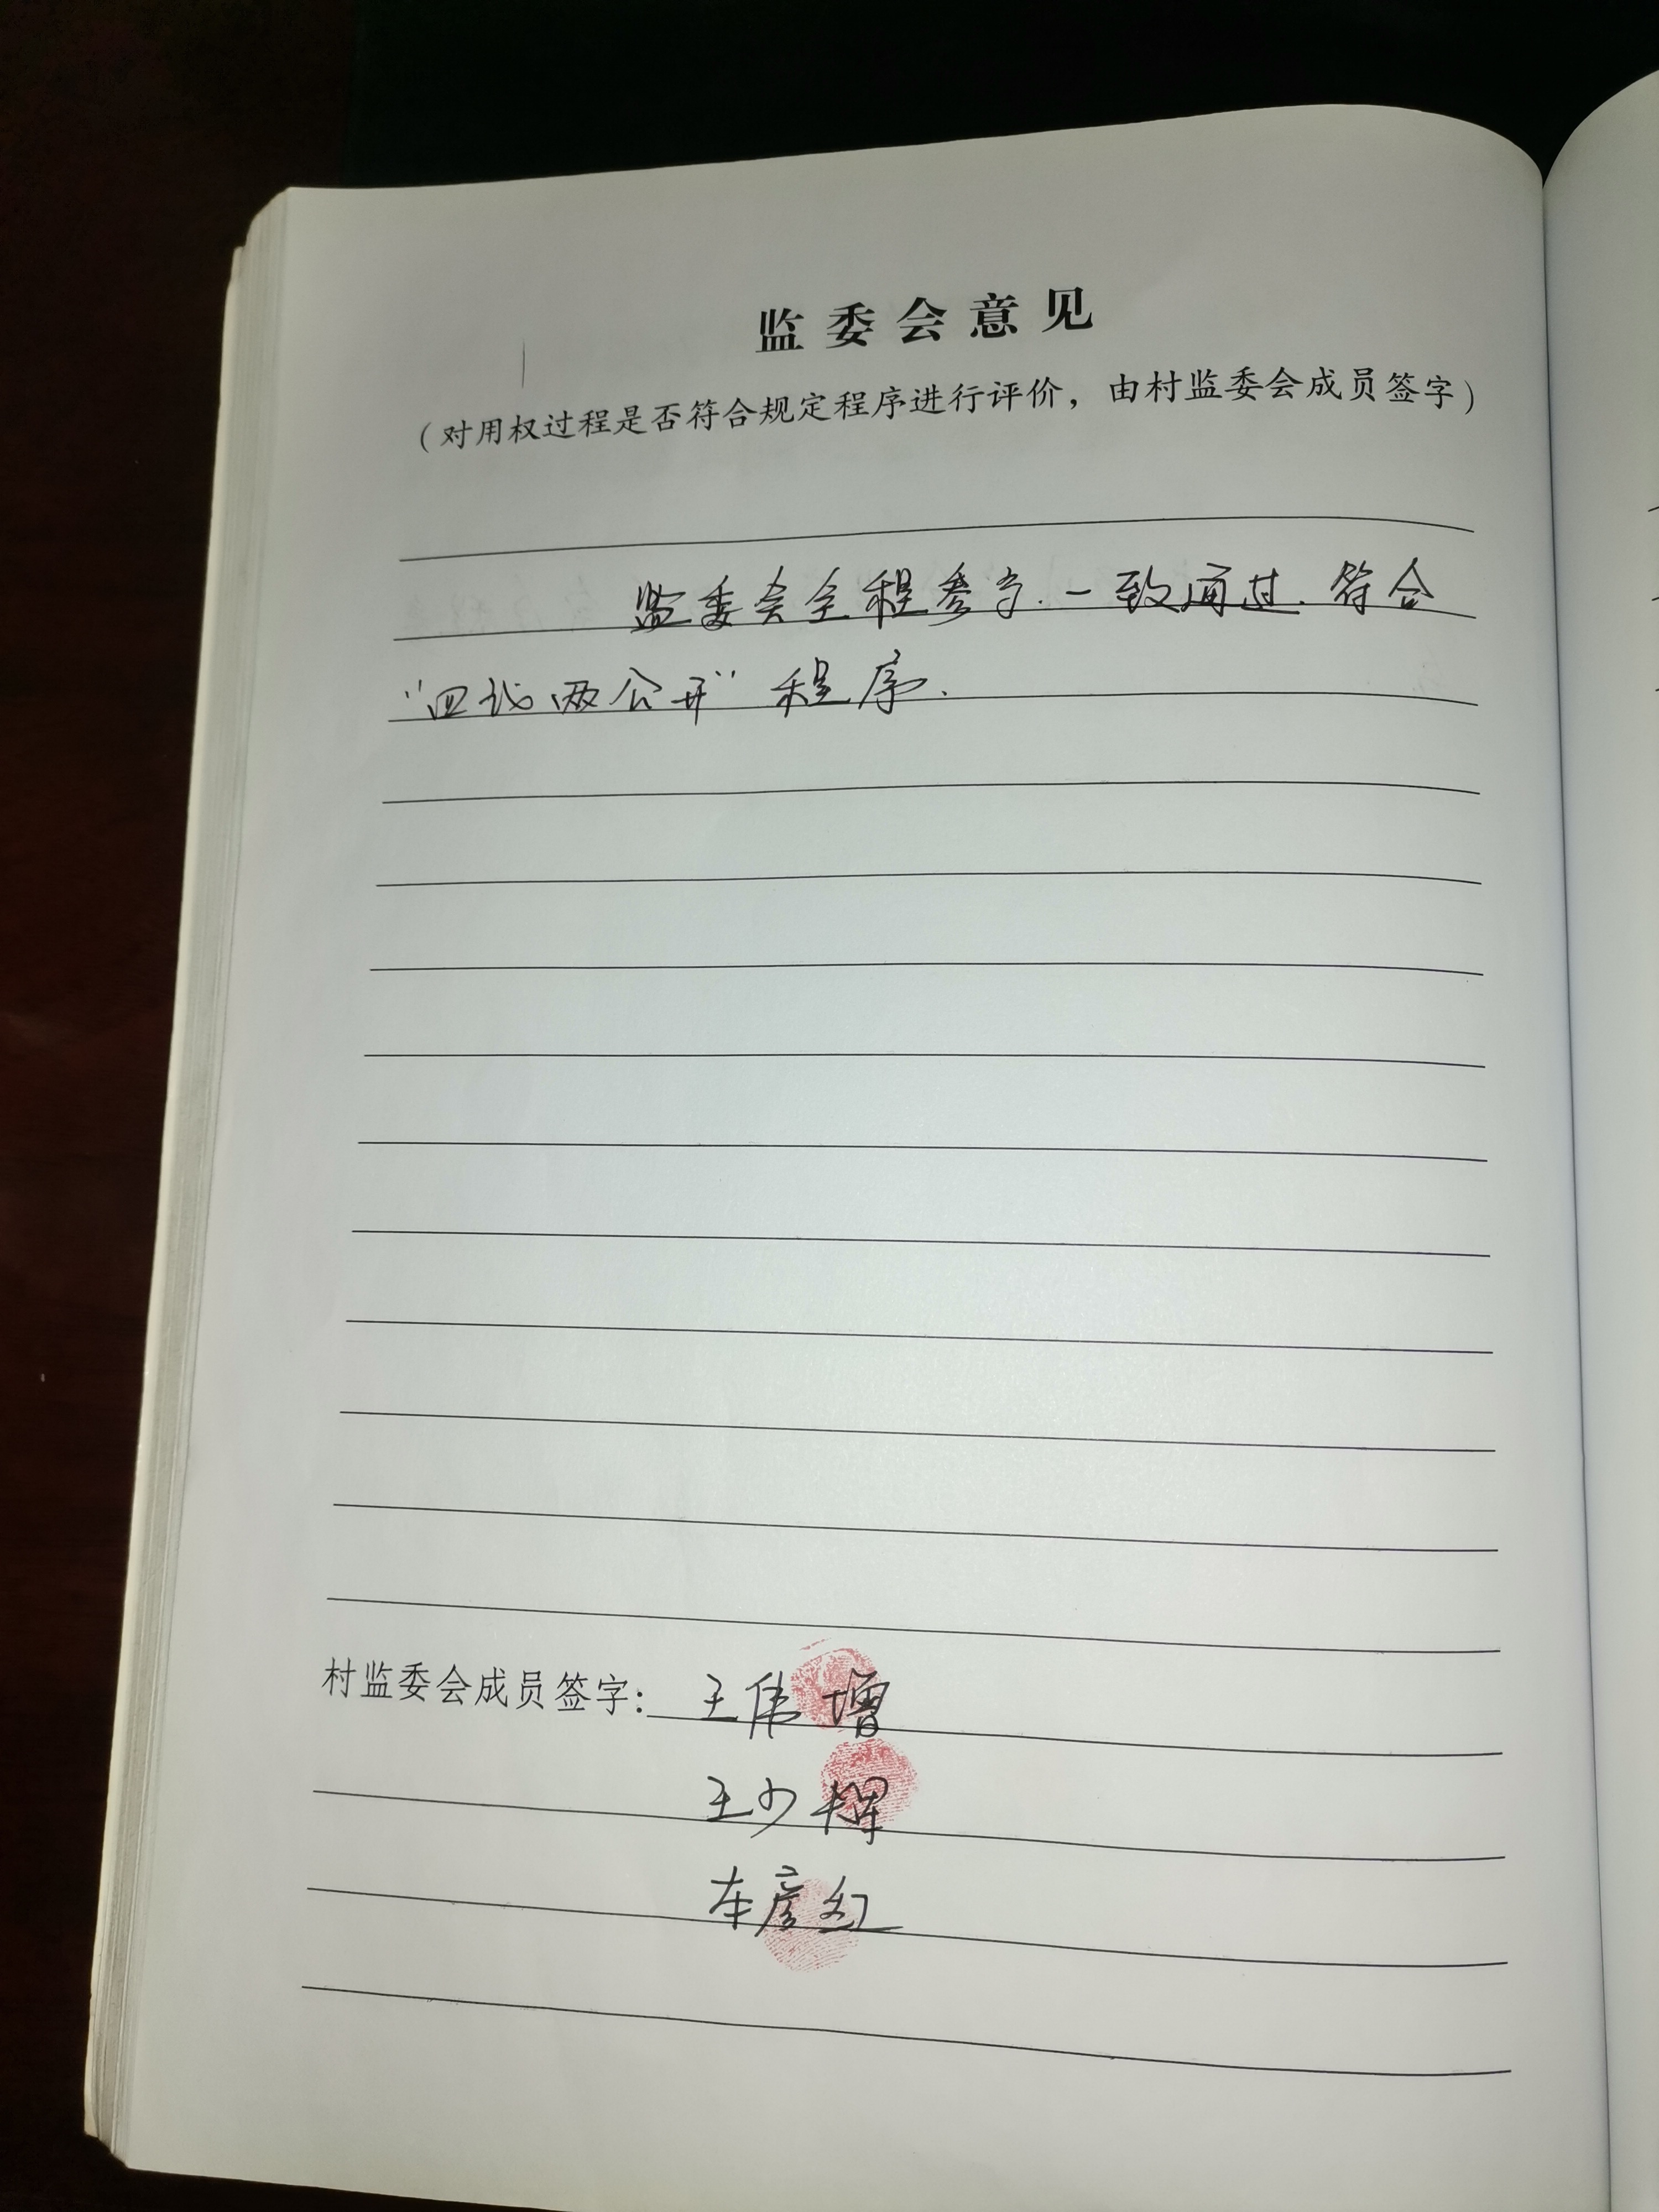 监委会意见
（对用权过程是否符合规定程序进行评价，由村监委会成员签字）
监委会全程参与.一致通过.符合
“四议两公开”程序.
村监委会成员签字：王伟增
王少辉
本彦红